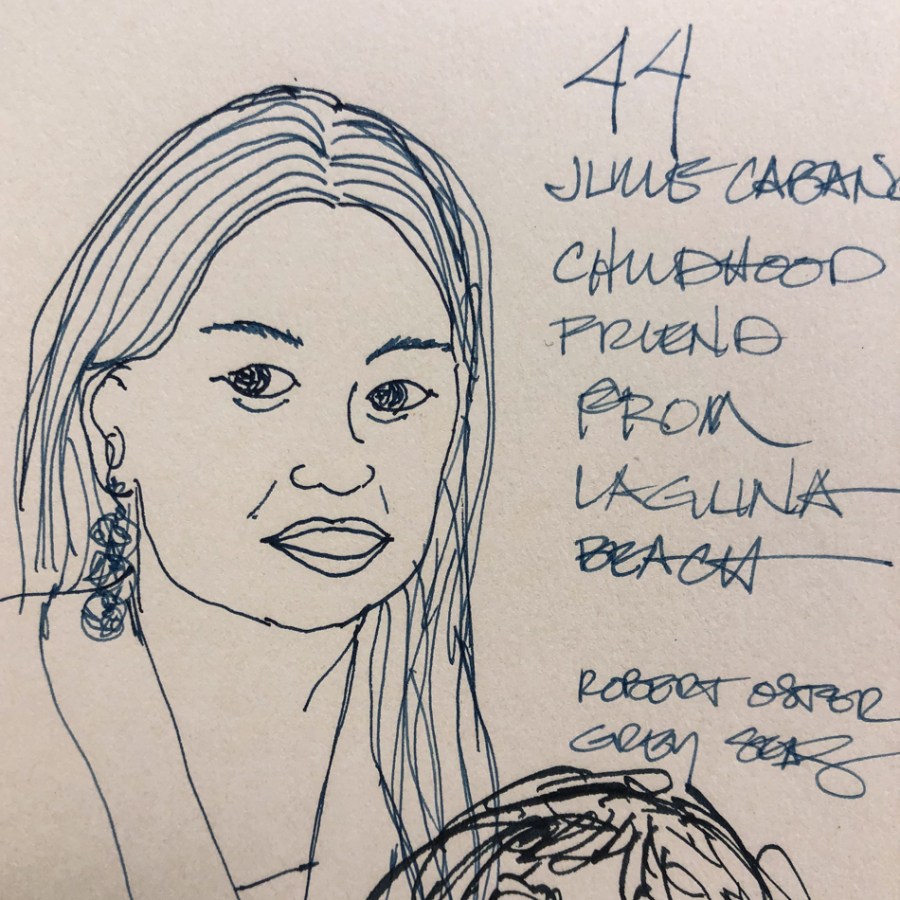 44
JULIE CABAN
CHILDHOOD
FRIEND
FROM
LAGUNA
BEACH
ROBERT OSTER
GREY SEAS